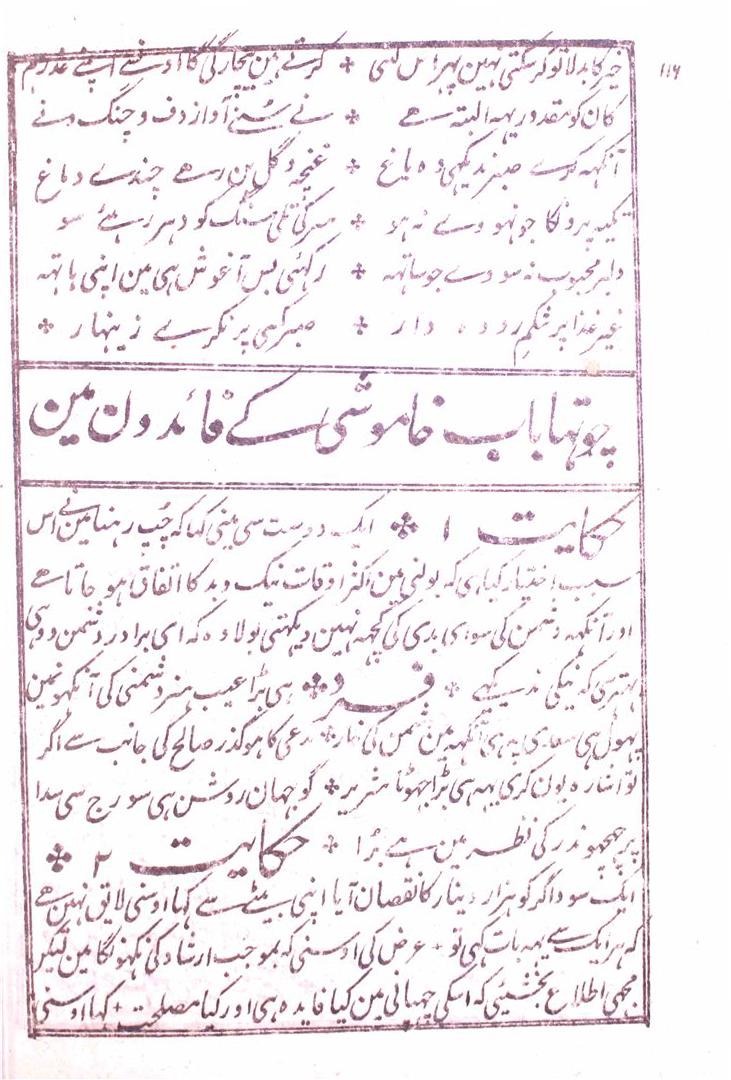 ۱۱۶
خیر کا بدلا تو کر سکتی نہین پہر اس لئی ✤ کرتے ہین بیچارگی کا اوسنے اپنے عذر ہم
کان کو مقدور یہہ البتہ ہے ✤ نے سُنے آواز دف و چنگ و نے
آنکہہ کرے صبر ندیکہی وہ باغ ✤ غنچہ و گل بن رہے چندے دماغ
تکیہ پرونکا جو نہووے نہ ہو ✤ سر کی تلی سنگ کو دہر رہئے سو
دلبر محبوب نہ سووے جو ساتہہ ✤ رکہئی بس آغوش ہی مین اپنی ہاتہہ
غیر غذا پر شکم رودہ دار ✤ صبر کسی پر نکرے زینہار ✤
چوتہا باب خاموشی کے فائدون مین
حکایت ۱ ✤ ایک دوست سی مینی کہا کہ چُپ رہنا مین نے اس
سبب اختیار کیا ہی کہ بولنی مین اکثر اوقات نیک و بد کا اتفاق ہو جاتا ہے
اور آنکہہ دشمن کی سوای بدی کی کچہہ نہین دیکہتی بولا وہ کہ ای برادر دشمن ووہی
بہتر ہی کہ نیکی ندیکہے ✤ فرد ✤ ہی بڑا عیب ہنر دشمنی کی آنکہونمین
پہول ہی سعدی پہ ہی آنکہہ مین دشمن کی خار ✤ مدعی کا ہو گذر صالح کی جانب سے اگر
تو اشارہ یون کری یہہ ہی بڑا جہوٹا شریر ✤ گو جہان روشن ہی سورج سی سدا
پر چھچھوندر کی نظر مین ہے بُرا ✤ حکایت ۲ ✤
ایک سوداگر کو ہزار دینار کا نقصان آیا اپنی بیٹے سے کہا اوسنی لایق نہین ہے
کہ ہر ایک سے یہہ بات کہی تو ✤ عرض کی اوسنی کہ بموجب ارشاد کی نکہونگا مین لیکن
مجہی اطلاع بخشیئی کہ اسکی چہپانی مین کیا فایدہ ہی اور کیا مصلحت ✤ کہا اوسنی